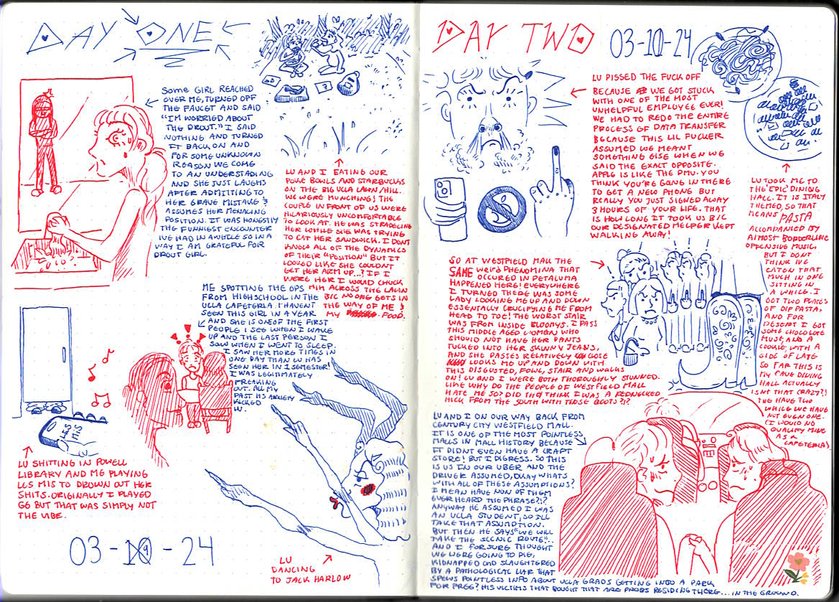 DAY ONE
Some GIRL REACHED
OVER ME, TURNED OFF
THE FAUCET AND SAID
"I'M WORRIED ABOUT
THE DROUT." I SAID
NOTHING AND TURNED
IT BACK ON AND
FOR SOME UNKNOWN
REASON WE COME
TO AN UNDERSTANDING
AND SHE JUST LAUGHS
AFTER ADMITTING TO
HER GRAVE MISTAKE &
ASSUMES HER MENACING
POSITION. IT WAS HONESTLY
THE FUNNIEST ENCOUNTER
IVE HAD IN AWHILE SO IN A
WAY I AM GRATEFUL FOR
DROUT GIRL.
LU AND I EATING OUR
POKE BOWLS AND STARBUCKS
ON THE BIG UCLA LAWN/HILL.
WE WERE MUNCHING! THE
COUPLE IN FRONT OF US WERE
HILARIOUSLY UNCOMFORTABLE
TO LOOK AT. HE WAS STRADELING
HER WHILE SHE WAS TRYING
TO EAT HER SANDWICH. I DONT
KNOW ALL OF THE DYNAMICS
OF THEIR "POSITION" BUT IT
LOOKED LIKE SHE COULDNT
GET HER ARM UP...! IF I
WERE HER I WOULD CHUCK
HIM ACROSS THE LAWN
B/C NO ONE GETS IN
THE WAY OF ME &
MY FOOD.
ME SPOTTING THE OPS
FROM HIGHSCHOOL IN THE
UCLA CAFETERIA. I HAVENT
SEEN THIS GIRL IN A YEAR
AND SHE IS ONE OF THE FIRST
PEOPLE I SEE WHEN I WAKE
UP AND THE LAST PERSON I
SAW WHEN I WENT TO SLEEP.
I SAW HER MORE TIMES IN
ONE DAY THAN LU HAS
SEEN HER IN 1 SEMESTER!
I WAS LEGITIMATELY
FREAKING
OUT. ALL MY
PAST HS ANXIETY
KICKED
IN.
LES MIS
LU SHITTING IN POWELL
LIBRARY AND ME PLAYING
LES MIS TO DROWN OUT HER
SHITS. ORIGINALLY I PLAYED
GG BUT THAT WAS SIMPLY NOT
THE VIBE.
03-09-24
LU
DANCING
TO JACK HARLOW
DAY TWO
03-10-24
LU PISSED THE FUCK OFF
BECAUSE WE GOT STUCK
WITH ONE OF THE MOST
UNHELPFUL EMPLOYEE EVER!
WE HAD TO REDO THE ENTIRE
PROCESS OF DATA TRANSFER
BECAUSE THIS LIL FUCKER
ASSUMED WE MEANT
SOMETHING ELSE WHEN WE
SAID THE EXACT OPPOSITE.
APPLE IS LIKE THE DMV. YOU
THINK YOU'RE GOING IN THERE
TO GET A NEW PHONE BUT
REALLY YOU JUST SIGNED AWAY
3 HOURS OF YOUR LIFE. THAT
IS HOW LONG IT TOOK US B/C
OUR DESIGNATED HELPER KEPT
WALKING AWAY!
LU TOOK ME TO
THE "EPIC" DINING
HALL. IT IS ITALY
THEMED, SO THAT
MEANS PASTA
ACCOMPANIED BY
ALMOST BORDERLINE
OFFENSIVE MUSIC
BUT I DONT
THINK IVE
EATEN THAT
MUCH IN ONE
SITTING IN
A WHILE. I
GOT TWO PLATES
OF DIF PASTA,
AND FOR
DESSERT I GOT
SOME CHOCOLATE
MOUSE AND A
COOKIE WITH A
SIDE OF LATE
SO FAR THIS IS
MY FAVE DINING
HALL ACTUALLY
ISNT THAT CRAZY?!
YOU HAVE TWO
WHILE WE HAVE
NOT EVEN ONE.
(I WOULD NO
QUALIFY MINE
AS A
CAFETERIA).
SO AT WESTFIELD MALL THE
SAME WEIRD PHENOMINA THAT
OCCURED IN PETALUMA
HAPPENED HERE! EVERYWHERE
I TURNED THERE WAS SOME
LADY LOOKING ME UP AND DOWN
ESSENTIALLY CRUCIFYING ME FROM
HEAD TO TOE! THE WORST STAIR
WAS FROM INSIDE BLOOMYS. I PASS
THIS MIDDLE AGED WOMBAT WHO
SHOULD NOT HAVE HER PANTS
TUCKED INTO HER SKINNY JEANS,
AND SHE PASSES RELATIVELY CLOSE
LOOKS ME UP AND DOWN WITH
THIS DISGUSTED, FOUL, STAIR AND WALKS
ON! LU AND I WERE BOTH THOROUGHLY STUNNED.
LIKE WHY DO THE PEOPLE OF WESTFIELD MALL
HATE ME SO? DID THEY THINK I WAS A REDNECKED
HICK FROM THE SOUTH WITH THOSE BOOTS??
LU AND I ON OUR WAY BACK FROM
CENTURY CITY WESTFIELD MALL.
IT IS ONE OF THE MOST POINTLESS
MALLS IN MALL HISTORY BECAUSE
IT DIDNT EVEN HAVE A CRAFT
STORE! BUT I DIGRESS. SO THIS
IS US IN OUR UBER AND THE
DRIVER ASSUMED, OKAY WHATS
WITH ALL OF THESE ASSUMPTIONS?
I MEAN HAVE NON OF THEM
EVER HEARD THE PHRASE?
ANYWAY HE ASSUMED I WAS
AN UCLA STUDENT, SO ILL
TAKE THAT ASSUMTION.
BUT THEN HE SAYS "WE WILL
TAKE THE SCENIC ROUTE"...
AND I FOR SURE THOUGHT
WE WERE GOING TO DIE,
KIDNAPPED AND SLAUGHTERED
BY A PATHOLOGICAL LIAR THAT
SPEWS POINTLESS INFO ABOUT UCLA GRADS GETTING INTO A PARK
FOR FREE? HIS VICTIMS THAT BOUGHT THAT ARE PROBS RESIDING THERE... IN THE GROUND.